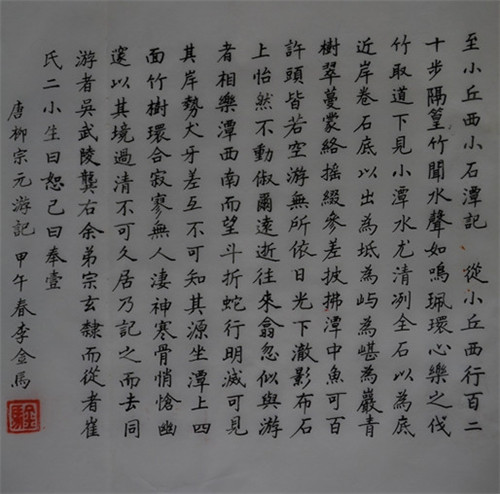 至小丘西小石潭記 從小丘西行百二
十步隔篁竹聞水聲如鳴珮環心樂之伐
竹取道下見小潭水尤清冽全石以為底
近岸卷石底以出為坻為屿為嵁為巖青
樹翠蔓蒙絡搖綴參差披拂潭中魚可百
許頭皆若空游無所依日光下澈影布石
上怡然不動俶爾遠逝往來翕忽似與游
者相樂潭西南而望斗折蛇行明滅可見
其岸勢犬牙差互不可知其源坐潭上四
面竹樹環合寂寥無人淒神寒骨悄愴幽
邃以其境過清不可久居乃記之而去同
游者吳武陵龔右余弟宗玄隸而從者崔
氏二小生曰恕己曰奉壹
唐柳宗元游記 甲午春李金馬